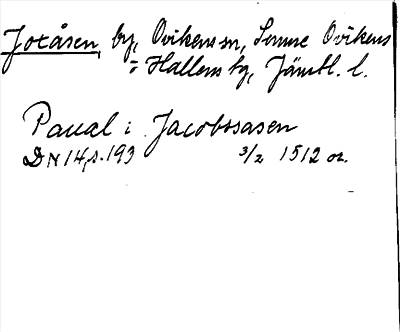 Jotåsen, by, Ovikens sn, Sunne Ovikens
o Hallens tg, Jämtl. l.
Paual i Jacobssasen
DN 14, s. 193 3/2 1512 or.